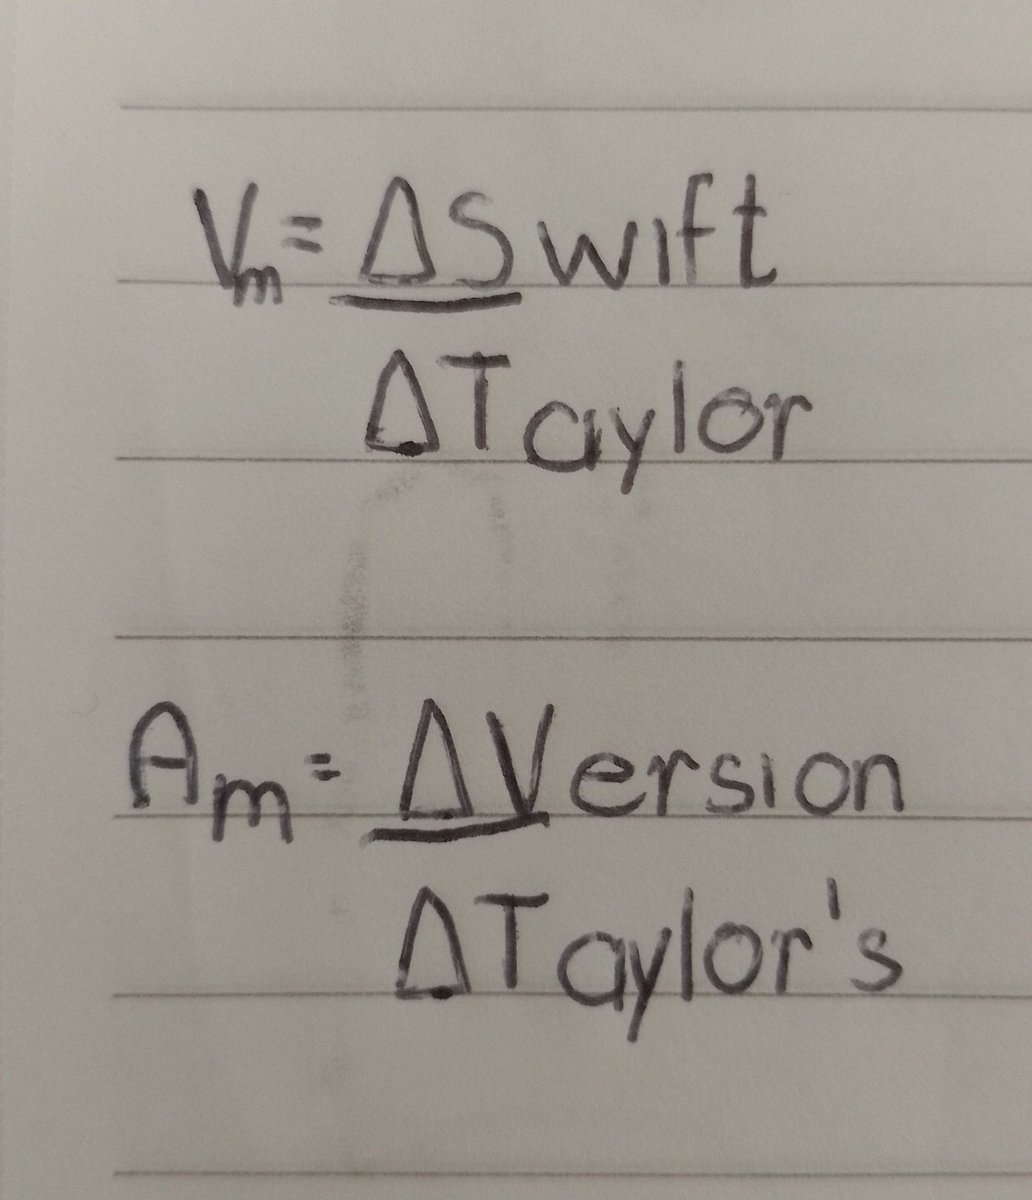 Vm= ΔSwift
ΔTaylor
Am= ΔVersion
ΔTaylor's